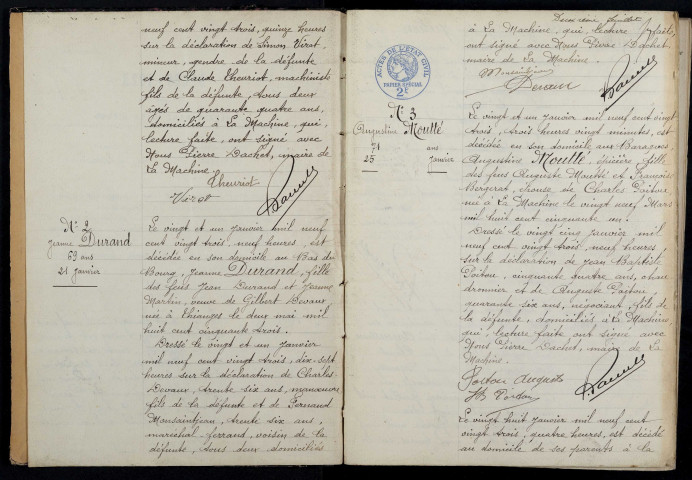 neuf cent vingt trois, quinze heures
sur la déclaration de Simon Virot,
mineur, gendre de la défunte
et de Claude Theuriot, machiniste
fils de la défunte, tous deux
agés de quarante quatre ans,
domiciliés à La Machine, qui,
lecture faite, ont signé avec
Nous Pierre Dachet, maire de
La Machine.
Theuriot
Virot
N° 2
Jeanne Durand
69 ans
21 janvier
Le vingt et un janvier mil neuf
cent vingt trois, neuf heures, est
décédée en son domicile au Bas du
Bourg, Jeanne Durand, fille
des feus Jean Durand et Jeanne
Martin, veuve de Gilbert Devaux
née à Thianges le deux mai mil
huit cent cinquante trois.
Dressé le vingt et un janvier
mil neuf cent vingt trois, dix sept
heures sur la déclaration de Charles
Devaux, trente six ans, manœuvre
fils de la défunte et de Fernand
trente six ans,
maréchal ferrand, voisin de la
défunte, tous deux domiciliés
Deuxième feuillet
à La Machine, qui, lecture faite,
ont signé avec Nous Pierre Dachet,
maire de La Machine.
ACTES DE L'ÉTAT CIVIL
PAPIER SPÉCIAL
N° 3
Augustine Moutté
71 ans
25 janvier
Le vingt et un janvier mil neuf cent vingt
trois, trois heures vingt minutes, est
décédée en son domicile aux Baraques
Augustine Moutté, épicière, fille
des feus Auguste Moutté et Françoise
Bergerat, épouse de Charles Poitou
né à La Machine le vingt neuf Mars
mil huit cent cinquante un.
Dressé le vingt cinq janvier mil
neuf cent vingt trois, neuf heures,
sur la déclaration de Jean Baptiste
Poitou, cinquante quatre ans, chau
dronnier et de Auguste Poitou,
quarante six ans, négociant, fils de
la défunte, domiciliés à La Machine
qui, lecture faite ont signé avec
Nous Pierre Dachet, maire de La
Machine.
Poitou Auguste
Le vingt huit janvier mil neuf cent
vingt trois, quatre heures, est décédé
au domicile de ses parents à la